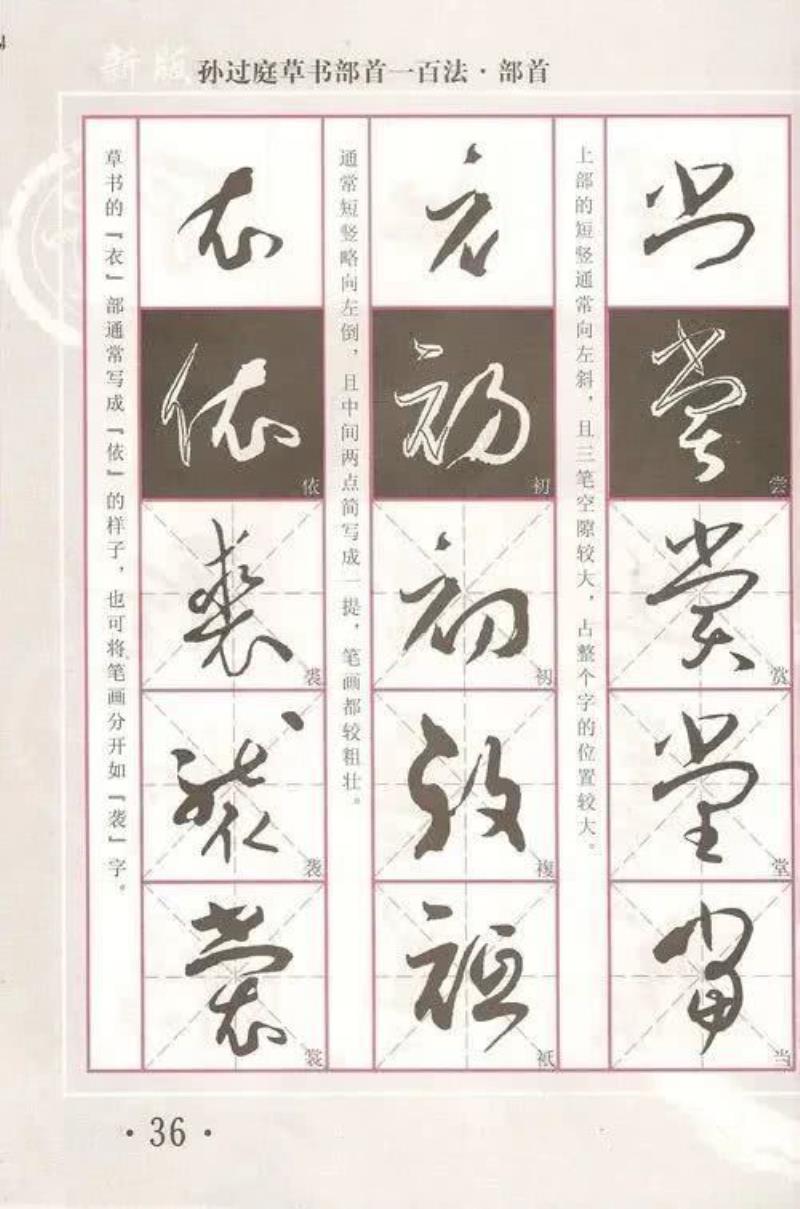 新版 孙过庭草书部首一百法·部首
上部的短竖通常向左斜，且三笔空隙较大，占整个字的位置较大。
尝
赏
堂
当
通常短竖略向左倒，且中间两点简写成一提，笔画都较粗壮。
初
初
複
袛
草书的『衣』部通常写成『依』的样子，也可将笔画分开如『袭』字。
依
裘
袭
裳
·36·